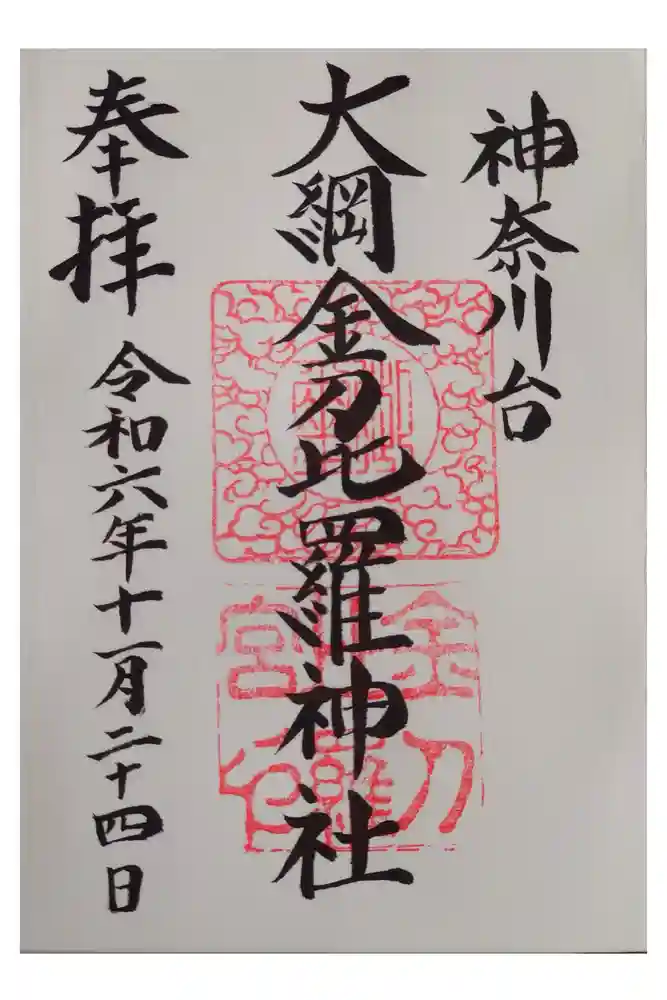 神奈川台
大綱金刀比羅神社
奉拝
令和六年十一月二十四日